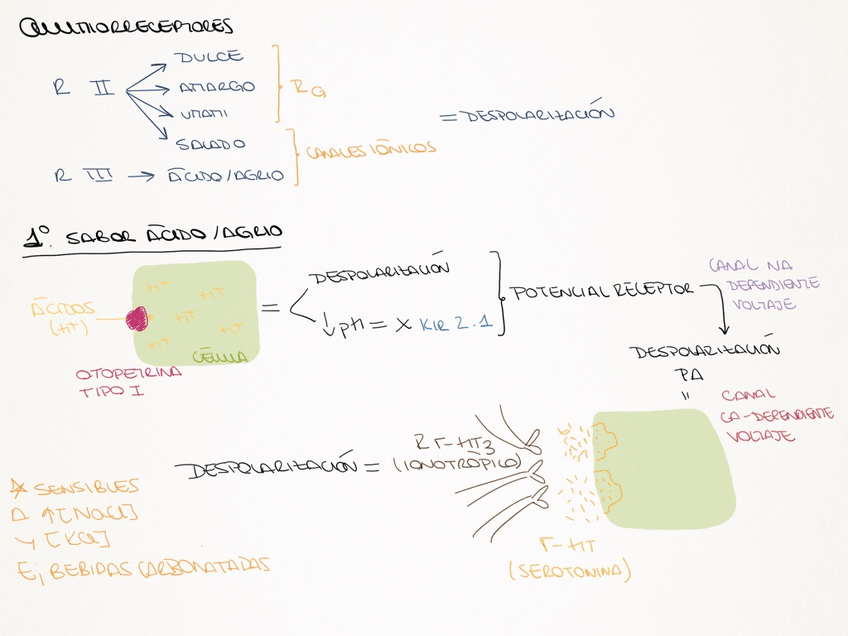 QUIMIORRECEPTORES
R II
DULCE
AMARGO
UMAMI
SALADO
RG
R III → ÁCIDO/AGRIO
CANALES IÓNICOS
= DESPOLARIZACIÓN
1º. SABOR ÁCIDO/AGRIO
ÁCIDOS
(H+)
H+ H+
H+ H+
H+
CÉLULA
OTOPETRINA
TIPO I
=
DESPOLARIZACIÓN
↓ pH = X KIR 2.1
POTENCIAL RECEPTOR
CANAL NA
DEPENDIENTE
VOLTAJE
DESPOLARIZACIÓN
PA
"
CANAL
CA-DEPENDIENTE
VOLTAJE
DESPOLARIZACIÓN =
R 5-HT3
(IONOTRÓPICO)
5-HT
(SEROTONINA)
* SENSIBLES
A ↑[NaCl]
Y [KCl]
Ej BEBIDAS CARBONATADAS